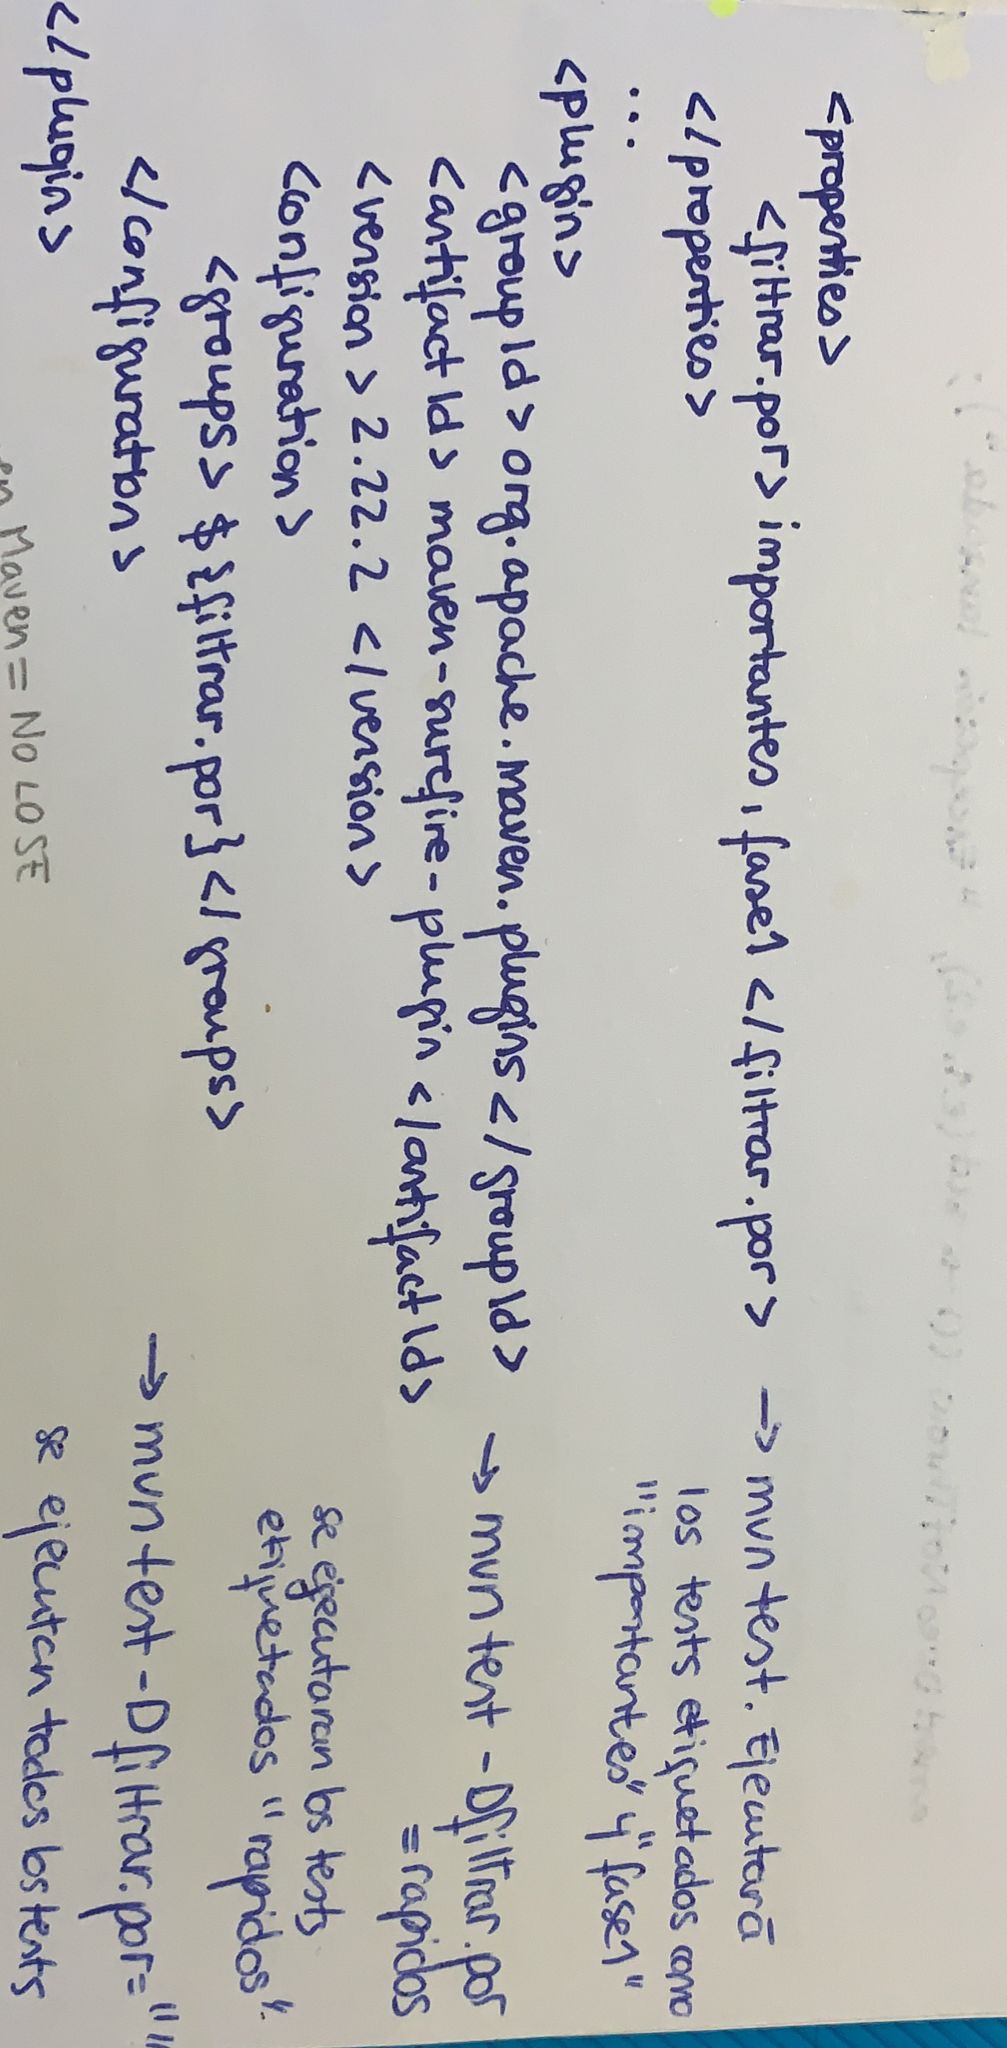 <properties>
<filtrar.por> importantes, fase1 </filtrar.por>
</properties>
...
<plugin>
<groupId> org.apache.maven.plugins </groupId>
<artifactId> maven-surefire-plugin </artifactId>
<version> 2.22.2 </version>
<configuration>
<groups> ${filtrar.por} </groups>
</configuration>
</plugin>
→ mvn test. Ejecutará
los tests etiquetados como
"importantes" y "fase1"
→ mvn test -Dfiltrar.por
=rapidos
se ejecutaran los tests
etiquetados "rapidos".
→ mvn test -Dfiltrar.por=""
se ejecutan todos los tests
en Maven = NO LO SE